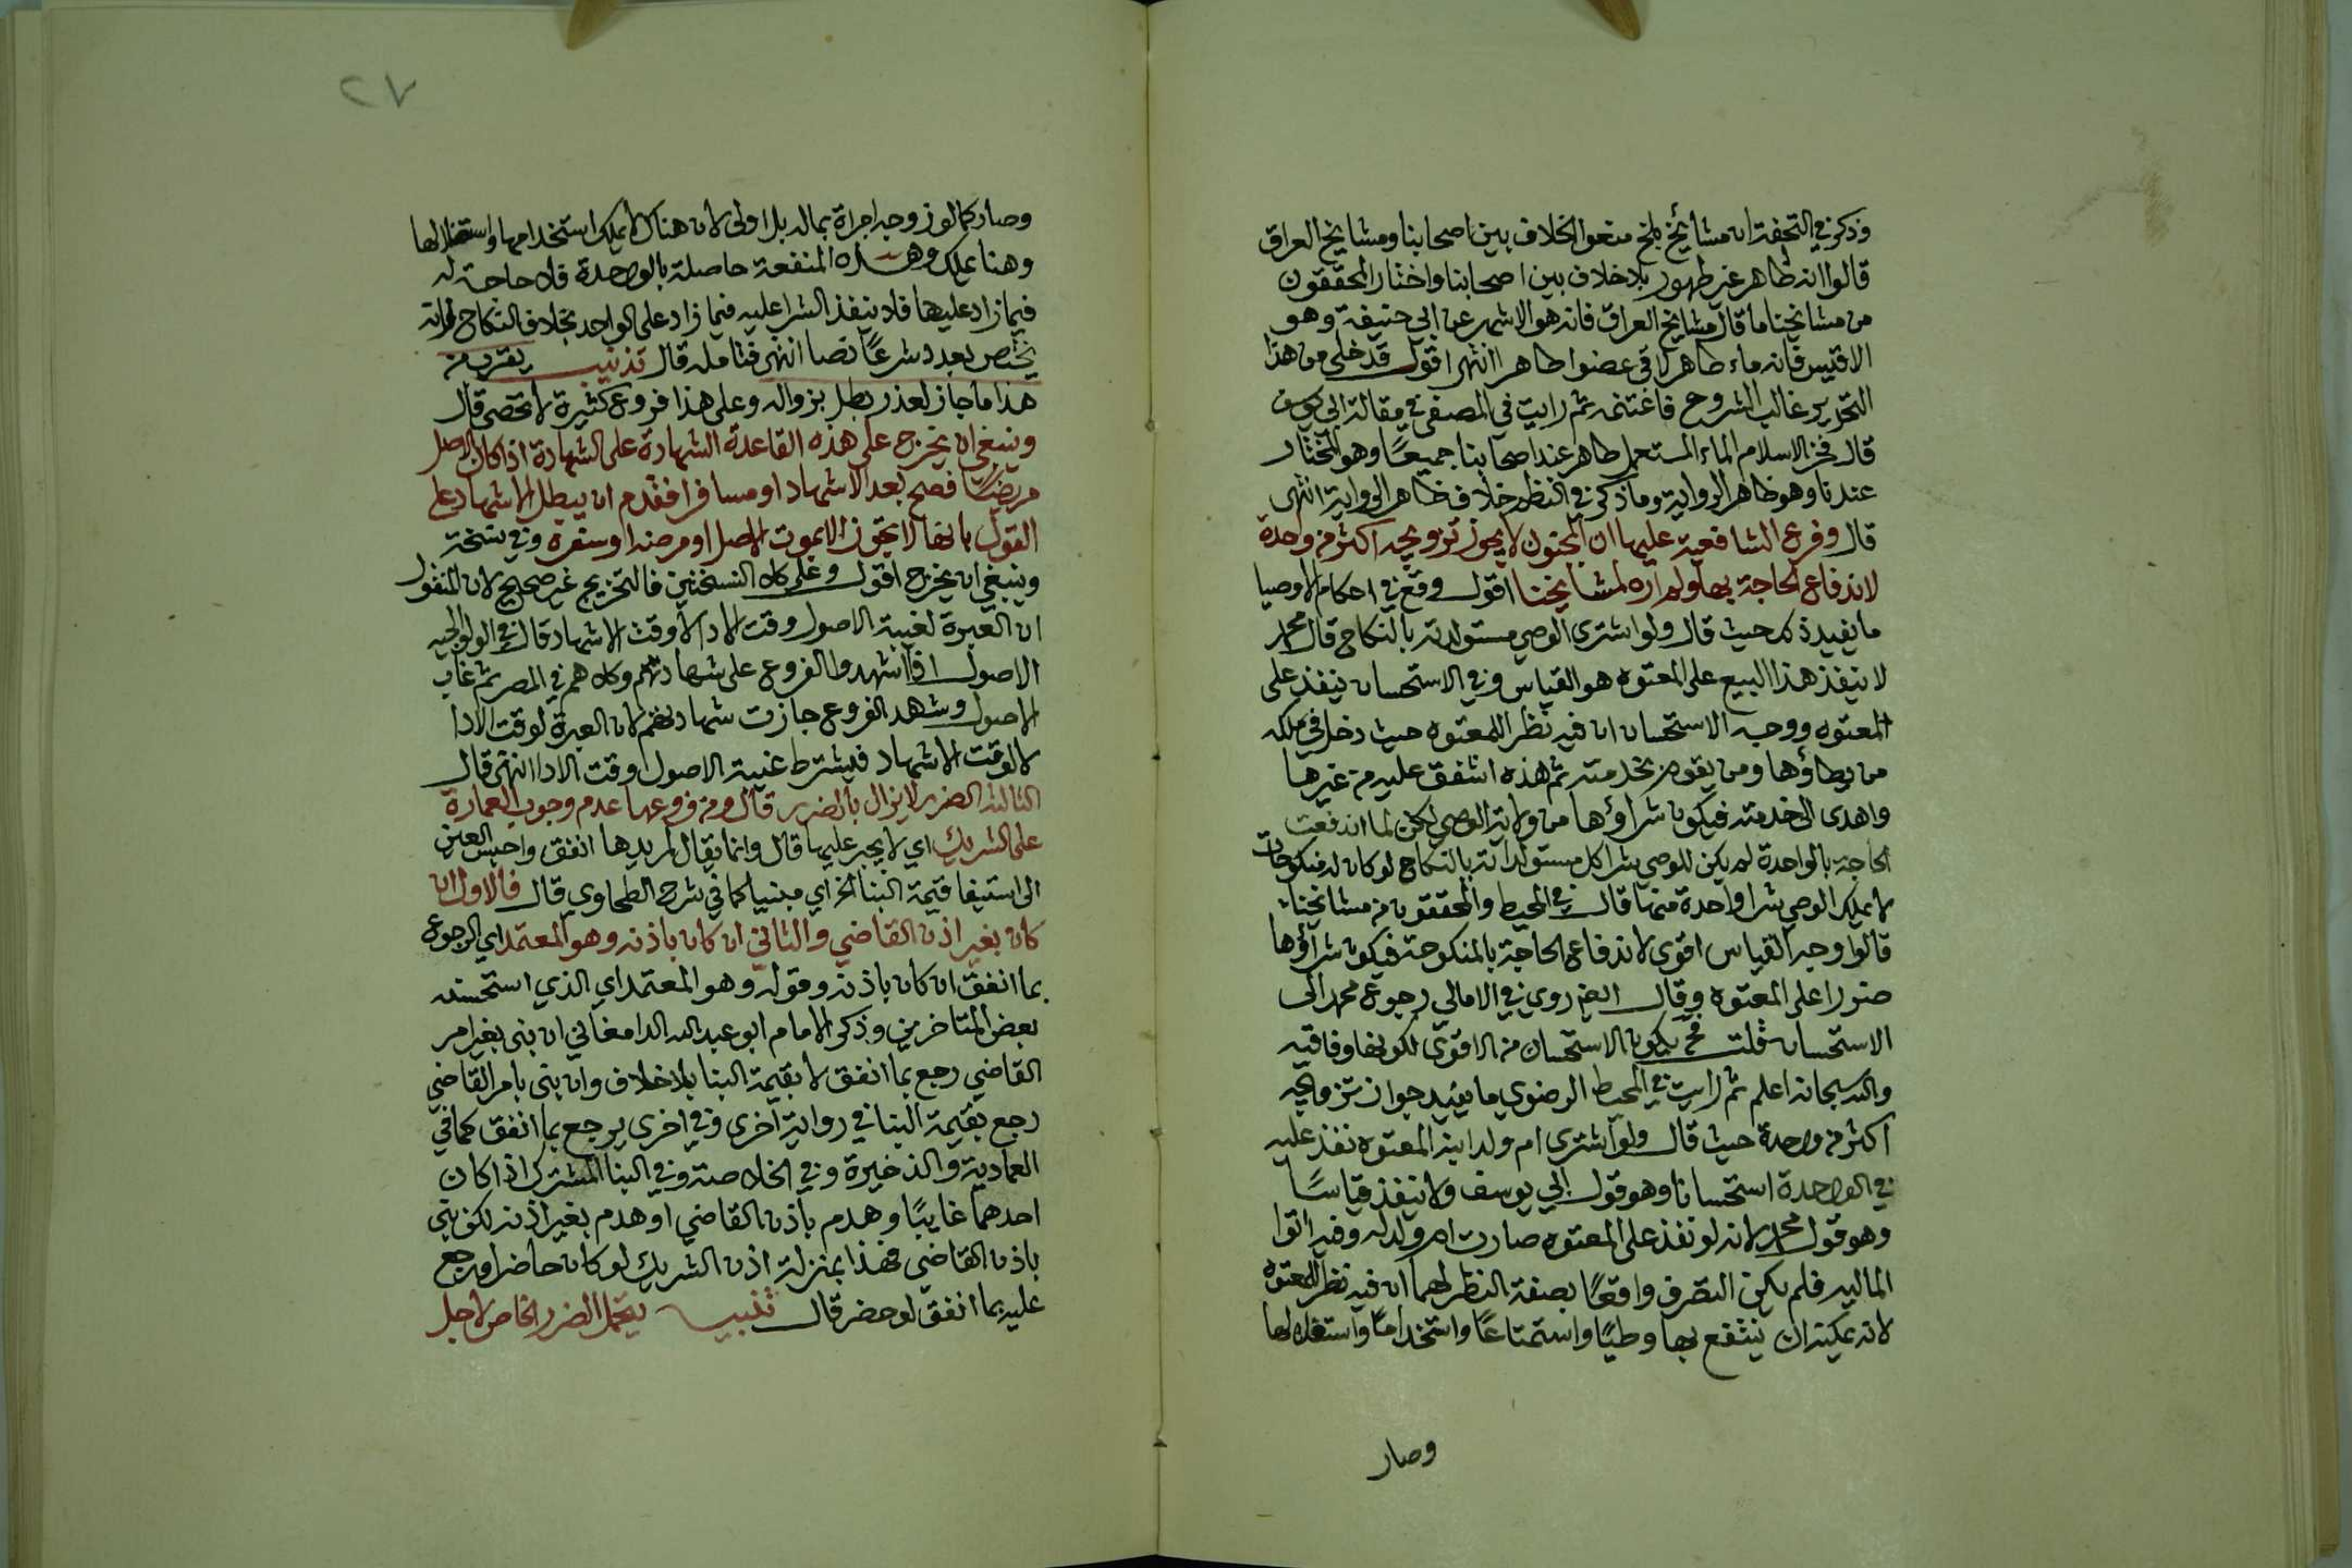 وذكر في التحفة ان مشائخ بلخ منعوا الخلاف بين اصحابنا ومشايخ العراق
قالوا انه طاهر غير طهور بلا خلاف بين اصحابنا واختار المحققون
من مشايخنا ما قال مشايخ العراق فانه هو الاشهر عن ابي حنيفة وهو
الاقيس فانه ماء طاهر لاقى عضوا طاهرا انتهى اقول قد خلى من هذا
التحرير غالب الشروح فاغتنمه ثم رايت في المصفى في مقالة ابي يوسف
قال فخر الاسلام الماء المستعمل طاهر عند اصحابنا جميعًا وهو المختار
عندنا وهو ظاهر الرواية وما ذكر في النظم خلاف ظاهر الرواية انتهى
قال وفرع الشافعية عليها ان المجنون لا يجوز تزويجه اكثر من وحدة
لاندفاع الحاجة بها ولم اره لمشايخنا اقول وقع في احكام الاوصيا
ما يفيد ذلك حيث قال ولو اشترى الوصي مستولدته بالنكاح قال محمد
لا ينفذ هذا البيع على المعتوه هو القياس وفي الاستحسان ينفذ على
المعتوه ووجه الاستحسان ان فيه نظرا للمعتوه حيث دخل في ملكه
من يطاؤها ومن يقوم بخدمته ثم هذه اشفق عليه من غيرها
واهدى الى خدمته فيكون شراؤها من ولاية الوصي لكن لما اندفعت
الحاجة بالواحدة لم يكن للوصي شرا كل مستولداته بالنكاح لو كان له منكوحات
لا يملك الوصي شرا واحدة منها قال في المحيط والمحققون من مشايخنا
قالوا وجه القياس اقوى لاندفاع الحاجة بالمنكوحة فيكون شراؤها
ضررا على المعتوه وقال روي في الامالي رجوع محمد الى
الاستحسان قلت فح يكون الاستحسان من الاقوى لكونها وفاقيه
والله سبحانه اعلم ثم رايت في المحيط الرضوي ما يفيد جواز تزويجه
اكثر من واحدة حيث قال ولو اشترى ام ولد ابنه المعتوه نفذ عليه
في الواحدة استحسانا وهو قول ابي يوسف ولا ينفذ قياسًا
وهو قول محمد لانه لو نفذ على المعتوه صارت ام ولد له وفيه اتوا
الماليه فلم يكن التصرف واقعًا بصفة النظر لهما ان فيه نظر المعتوه
لانه يمكنه ان ينتفع بها وطيًا واستمتاعًا واستخدامًا واستغلالها
وصار
٢٧
وصار كما لو زوجه امراة بماله بل اولى لان هناك لا يملك استخدامها واستغلالها
وهنا يملك وهذه المنفعة حاصلة بالواحدة فلا حاجة له
فيما زاد عليها فلا ينفذ الشرا عليه فيما زاد على الواحد بخلاف النكاح فانه
يختص بعدد شرعًا نصا انتهى فتامله قال تذنيب يقرب من
هذا ما جاز لعذر بطل بزواله وعلى هذا فروع كثيرة لا تحصى قال
وينبغي ان يخرج على هذه القاعدة الشهادة على الشهادة اذا كان الاصل
مريضًا فصح بعد الاشهاد او مسافرا فقدم ان يبطل الاشهاد على
القول بانها لا تجوز الا بموت الاصل او مرضه او سفره وفي نسخة
وينبغي ان يخرج اقول وعلى كلا النسختين فالتخريج غير صحيح لان المنقول
ان العبرة لغيبة الاصول وقت الادا لا وقت الاشهاد قال في الولوالجيه
الاصول اذا اشهدوا الفروع على شهادتهم وكلاهم في المصر ثم غاب
الاصول وشهد الفروع جازت شهادتهم لان العبرة لوقت الادا
لا لوقت الاشهاد فيشترط غيبة الاصول وقت الادا انتهى قال
الثالثه الضرر لا يزال بالضرر قال ومن فروعها عدم وجوب العمارة
على الشريك اي لا يجبر عليها قال وانما يقال لمريدها انفق واحبس العين
الى استيفا قيمة البنا الخ اي مبنيا كما في شرح الطحاوي قال فالاول ان
كان بغير اذن القاضي والثاني ان كان باذنه وهو المعتمد اي الرجوع
بما انفق ان كان باذنه وقوله وهو المعتمد اي الذي استحسنه
بعض المتاخرين وذكر الامام ابو عبد الله الدامغاني ان بنى بغير امر
القاضي رجع بما انفق لا بقيمة البنا بلا خلاف وان بنى بامر القاضي
رجع بقيمة البنا في رواية اخرى وفي اخرى يرجع بما انفق كما في
العمادية والذخيرة وفي الخلاصة وفي البنا المشترك اذا كان
احدهما غايبًا وهدم باذن القاضي او هدم بغير اذنه لكن بنى
باذن القاضي فهذا بمنزلة اذن الشريك لو كان حاضرا ورجع
عليه بما انفق لو حضر قال تنبيه يتحمل الضرر الخاص لاجل